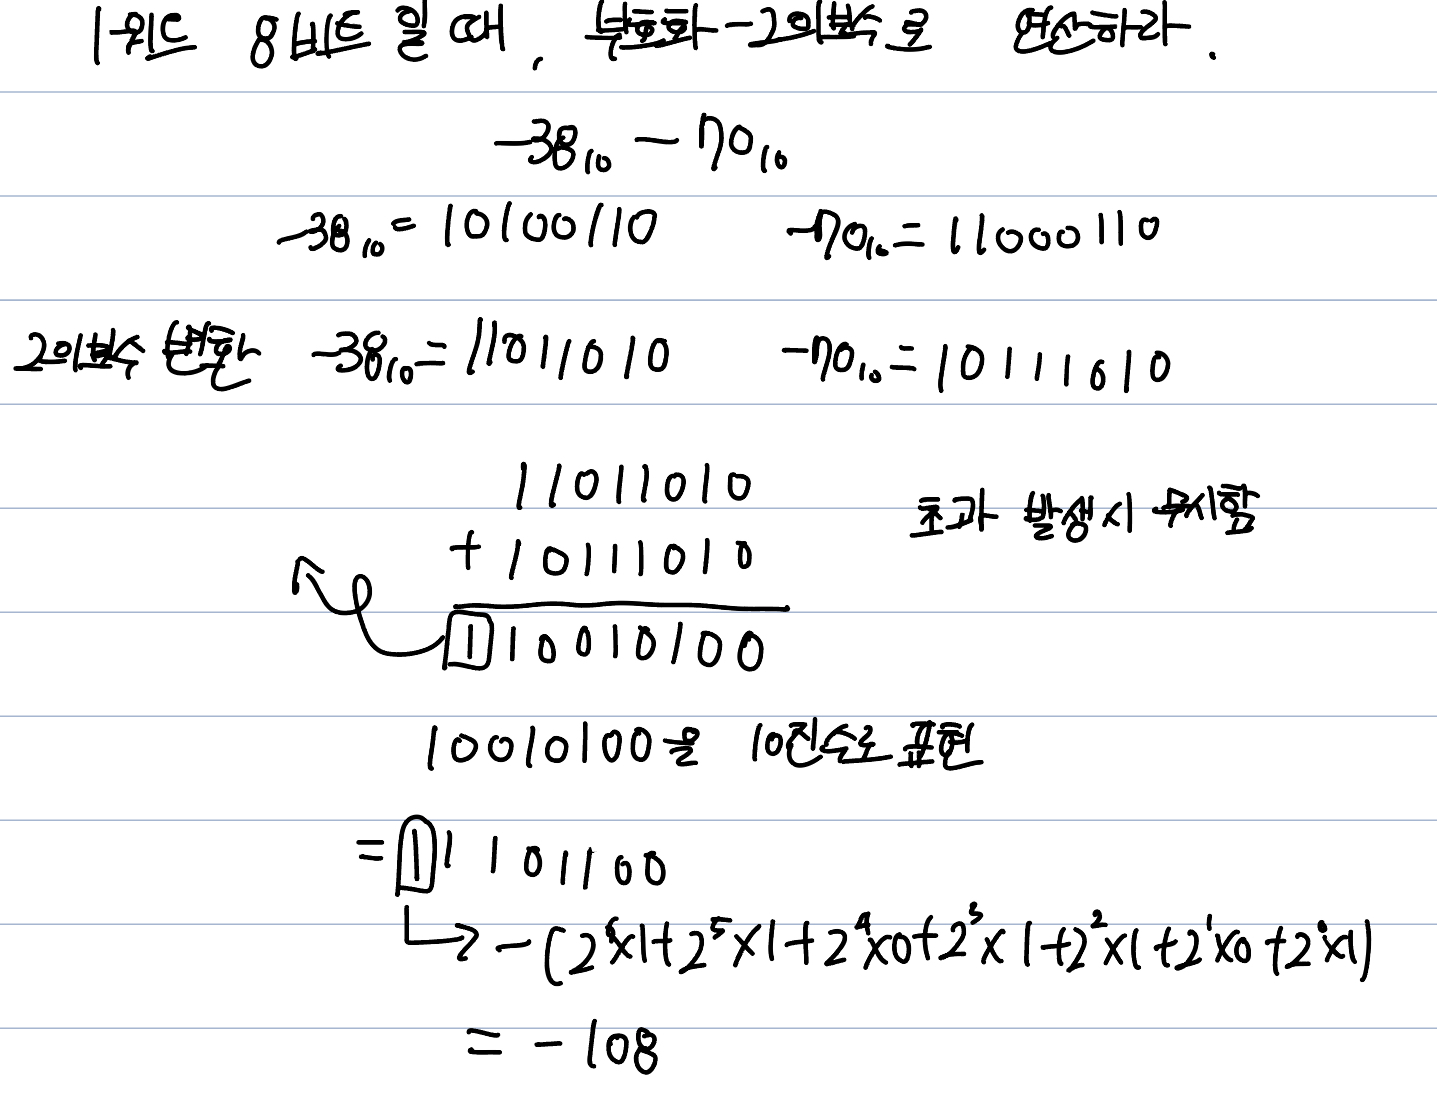 1워드 8비트 일 때, 부호화-2의보수로 연산하라.
-38₁₀ - 70₁₀
-38₁₀ = 10100110 -70₁₀ = 11000110
2의보수 변환 -38₁₀ = 11011010 -70₁₀ = 10111010
11011010
초과 발생시 무시함
+ 10111010
1 10010100
10010100을 10진수로 표현
= 1 1101100
→ -(2⁶×1+2⁵×1+2⁴×0+2³×1+2²×1+2¹×0+2⁰×1)
= -108